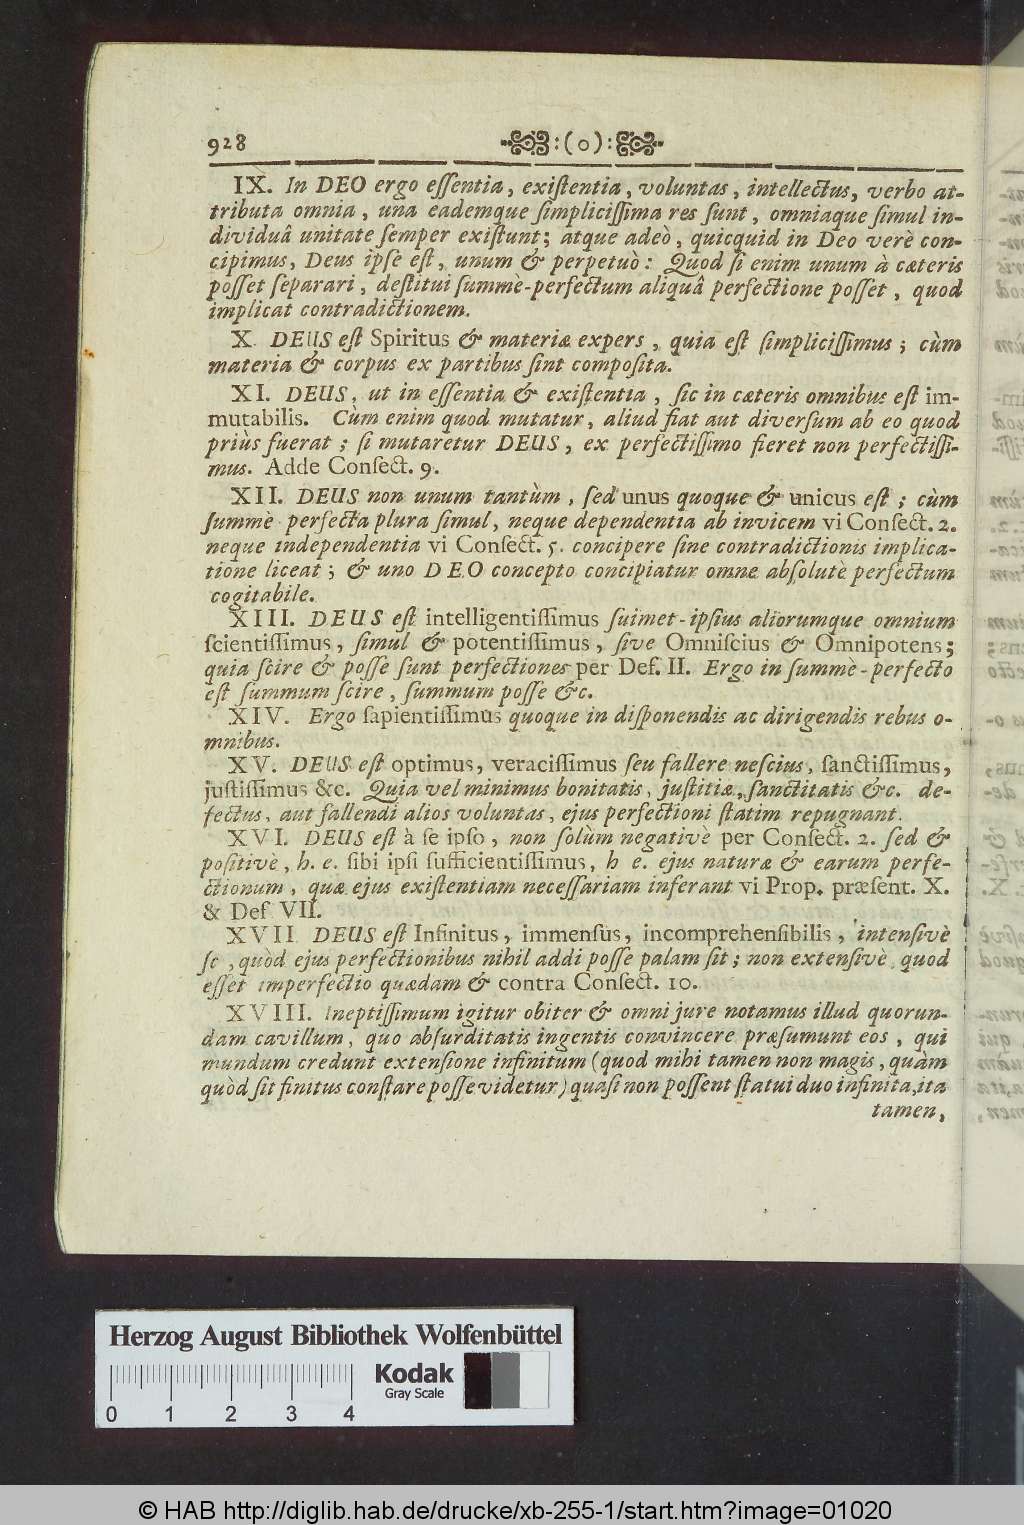 928 :(o):
IX. In DEO ergo eſſentia, exiſtentia, voluntas, intellectus, verbo at-
tributa omnia, una eademque ſimpliciſſima res ſunt, omniaque ſimul in-
dividuâ unitate ſemper exiſtunt; atque adeò, quicquid in Deo verè con-
cipimus, Deus ipſe eſt, unum & perpetuò: Quod ſi enim unum à cæteris
poſſet ſeparari, deſtitui ſummè-perfectum aliquâ perfectione poſſet, quod
implicat contradictionem.
X. DEUS eſt Spiritus & materiæ expers, quia eſt ſimpliciſſimus; cùm
materia & corpus ex partibus ſint compoſita.
XI. DEUS, ut in eſſentia & exiſtentia, ſic in cæteris omnibus eſt im-
mutabilis. Cùm enim quod mutatur, aliud fiat aut diverſum ab eo quod
priùs fuerat; ſi mutaretur DEUS, ex perfectiſſimo fieret non perfectiſſi-
mus. Adde Conſect. 9.
XII. DEUS non unum tantùm, ſed unus quoque & unicus eſt; cùm
ſummè perfecta plura ſimul, neque dependentia ab invicem vi Conſect. 2.
neque independentia vi Conſect. 5. concipere ſine contradictionis implica-
tione liceat; & uno DEO concepto concipiatur omne abſolutè perfectum
cogitabile.
XIII. DEUS eſt intelligentiſſimus ſuimet-ipſius aliorumque omnium
ſcientiſſimus, ſimul & potentiſſimus, ſive Omniſcius & Omnipotens;
quia ſcire & poſſe ſunt perfectiones per Def. II. Ergo in ſummè-perfecto
eſt ſummum ſcire, ſummum poſſe &c.
XIV. Ergo ſapientiſſimus quoque in diſponendis ac dirigendis rebus o-
mnibus.
XV. DEUS eſt optimus, veraciſſimus ſeu fallere neſcius, ſanctiſſimus,
juſtiſſimus &c. Quia vel minimus bonitatis, juſtitiæ, ſanctitatis &c. de-
fectus, aut fallendi alios voluntas, ejus perfectioni ſtatim repugnant.
XVI. DEUS eſt à ſe ipſo, non ſolùm negativè per Conſect. 2. ſed &
poſitivè, h. e. ſibi ipſi ſufficientiſſimus, h e. ejus naturæ & earum perfe-
ctionum, quæ ejus exiſtentiam neceſſariam inferant vi Prop. præſent. X.
& Def VII.
XVII DEUS eſt Infinitus, immenſus, incomprehenſibilis, intenſivè
ſc, quòd ejus perfectionibus nihil addi poſſe palam ſit; non extenſivè quod
eſſet imperfectio quædam & contra Conſect. 10.
XVIII. Ineptiſſimum igitur obiter & omni jure notamus illud quorun-
dam cavillum, quo abſurditatis ingentis convincere præſumunt eos, qui
mundum credunt extenſione infinitum (quod mihi tamen non magis, quàm
quòd ſit finitus conſtare poſſe videtur) quaſi non poſſent ſtatui duo infinita, ita
tamen,
Herzog August Bibliothek Wolfenbüttel
Kodak
Gray Scale
0 1 2 3 4
© HAB http://diglib.hab.de/drucke/xb-255-1/start.htm?image=01020